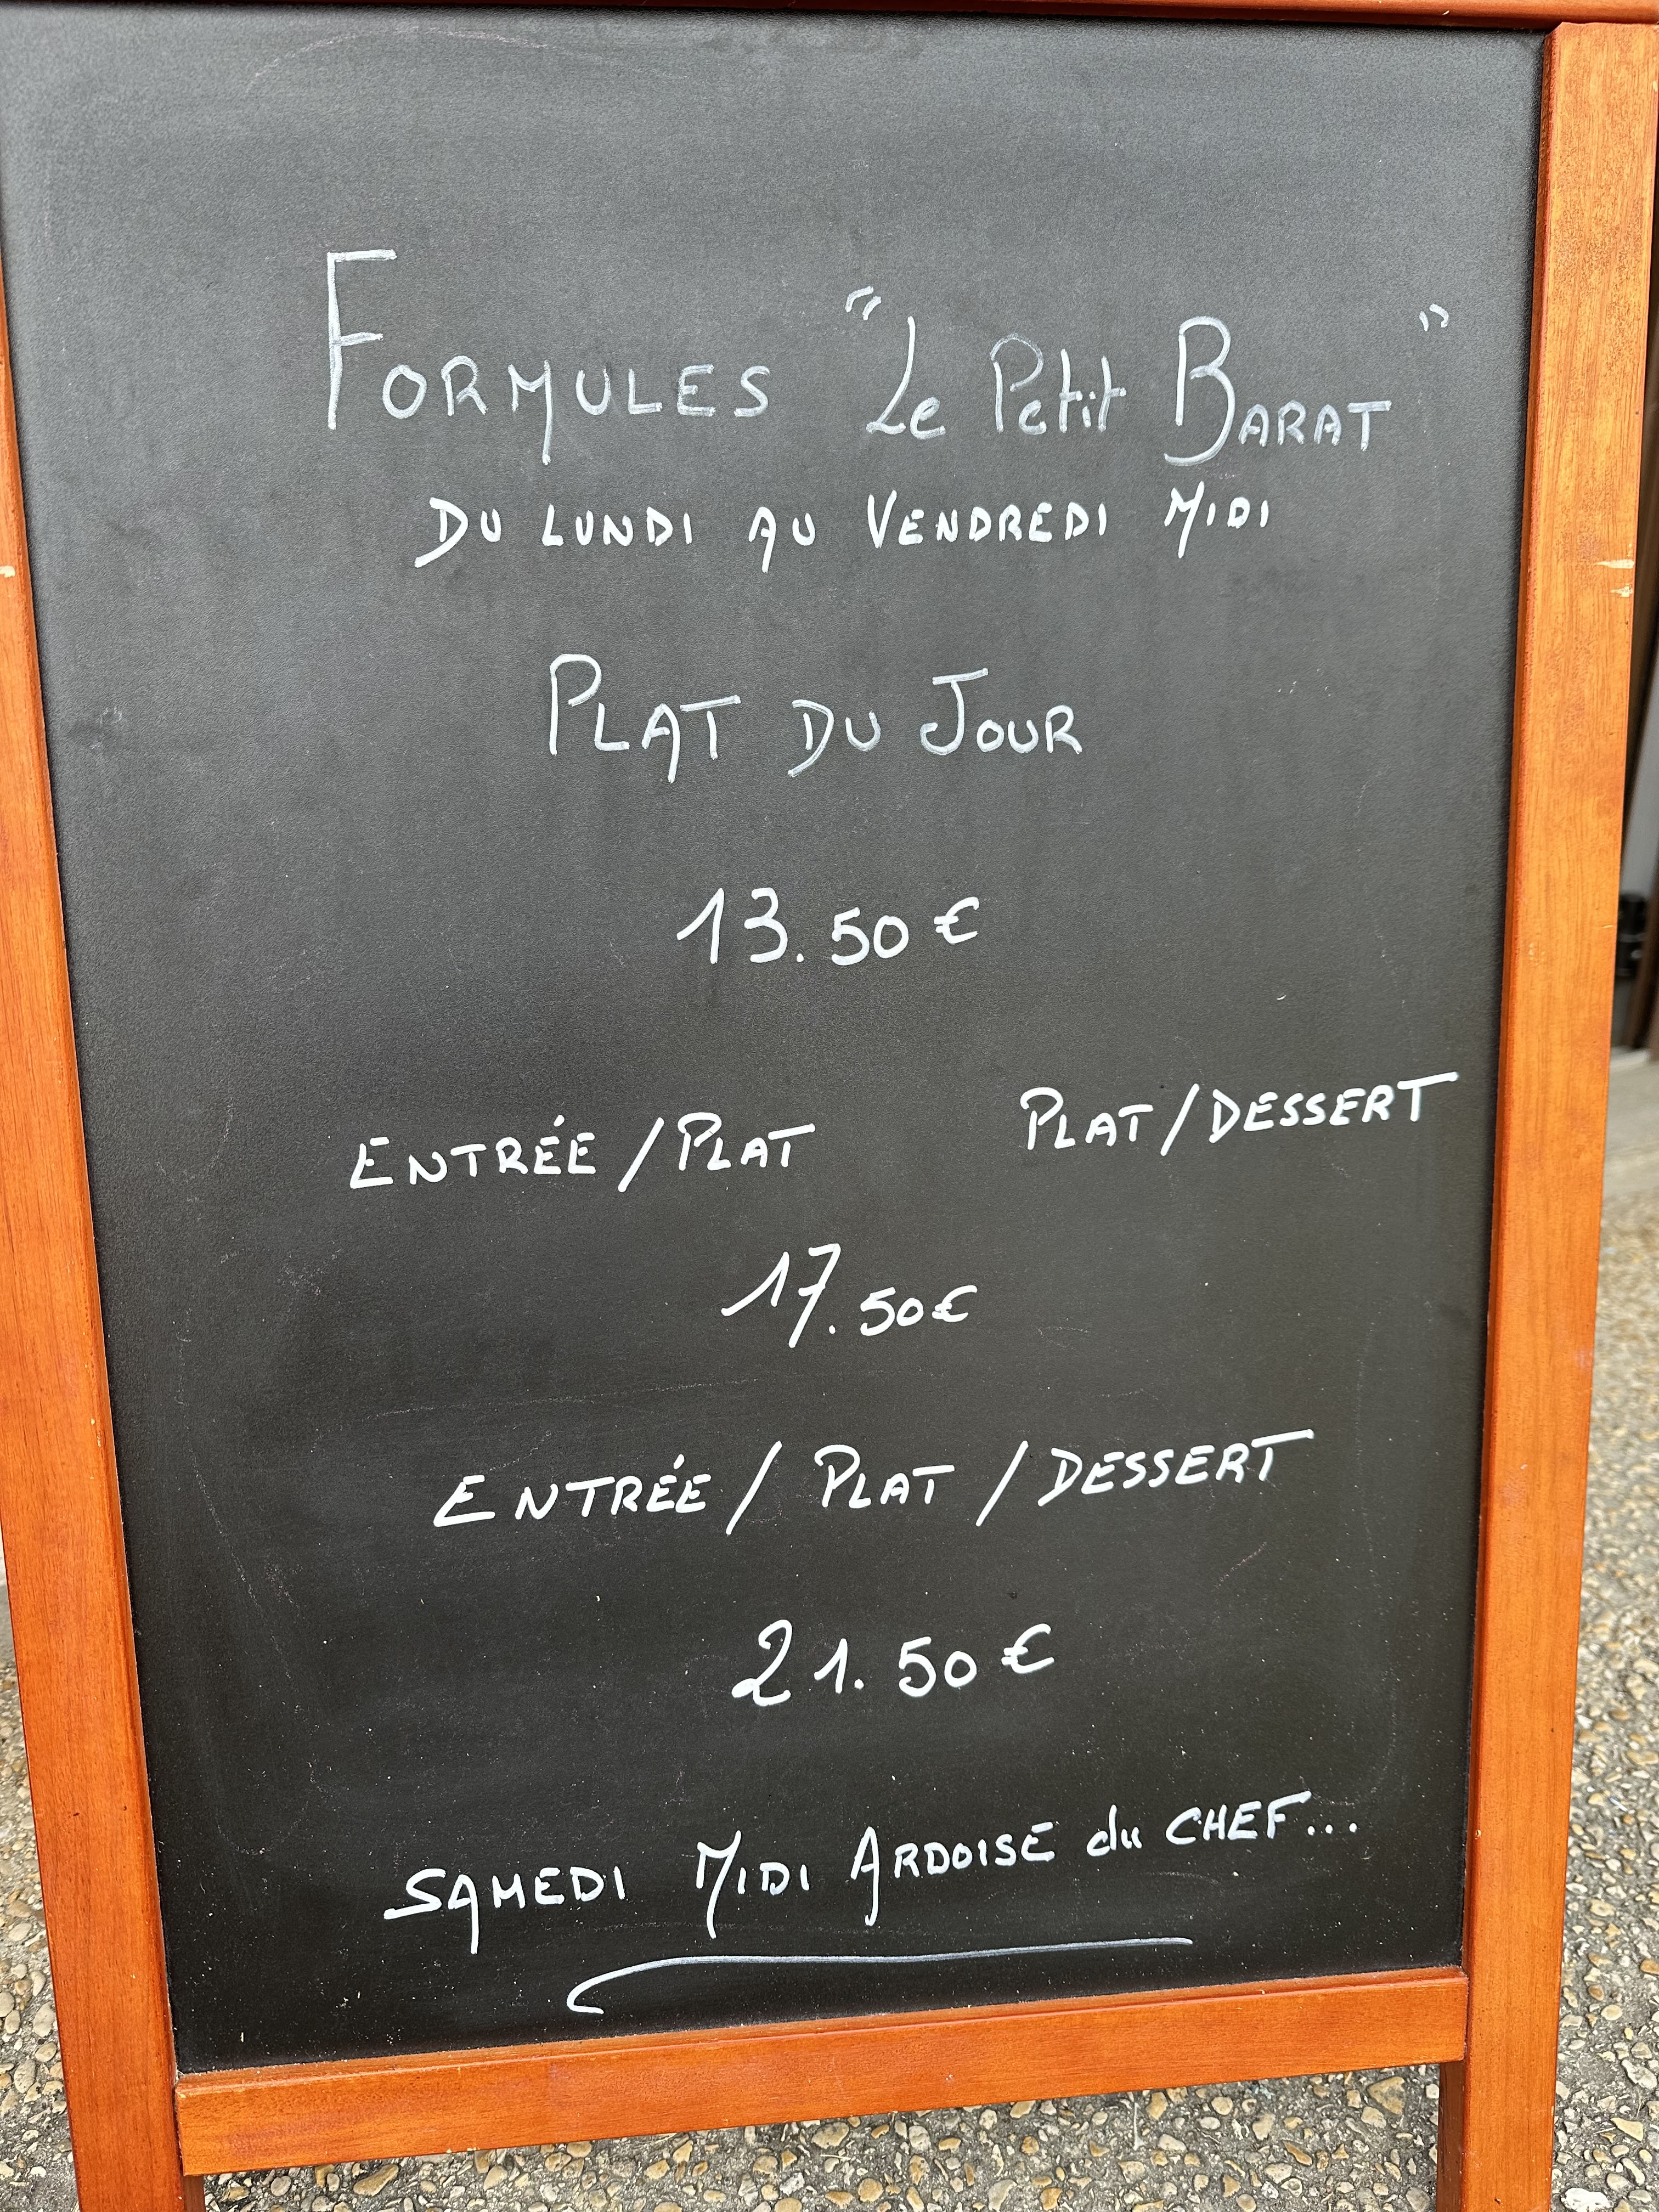 FORMULES "Le Petit BARAT"
DU LUNDI AU VENDREDI MIDI
PLAT DU JOUR
13.50 €
ENTRÉE / PLAT PLAT / DESSERT
17.50 €
ENTRÉE / PLAT / DESSERT
21.50 €
SAMEDI MIDI ARDOISE du CHEF...